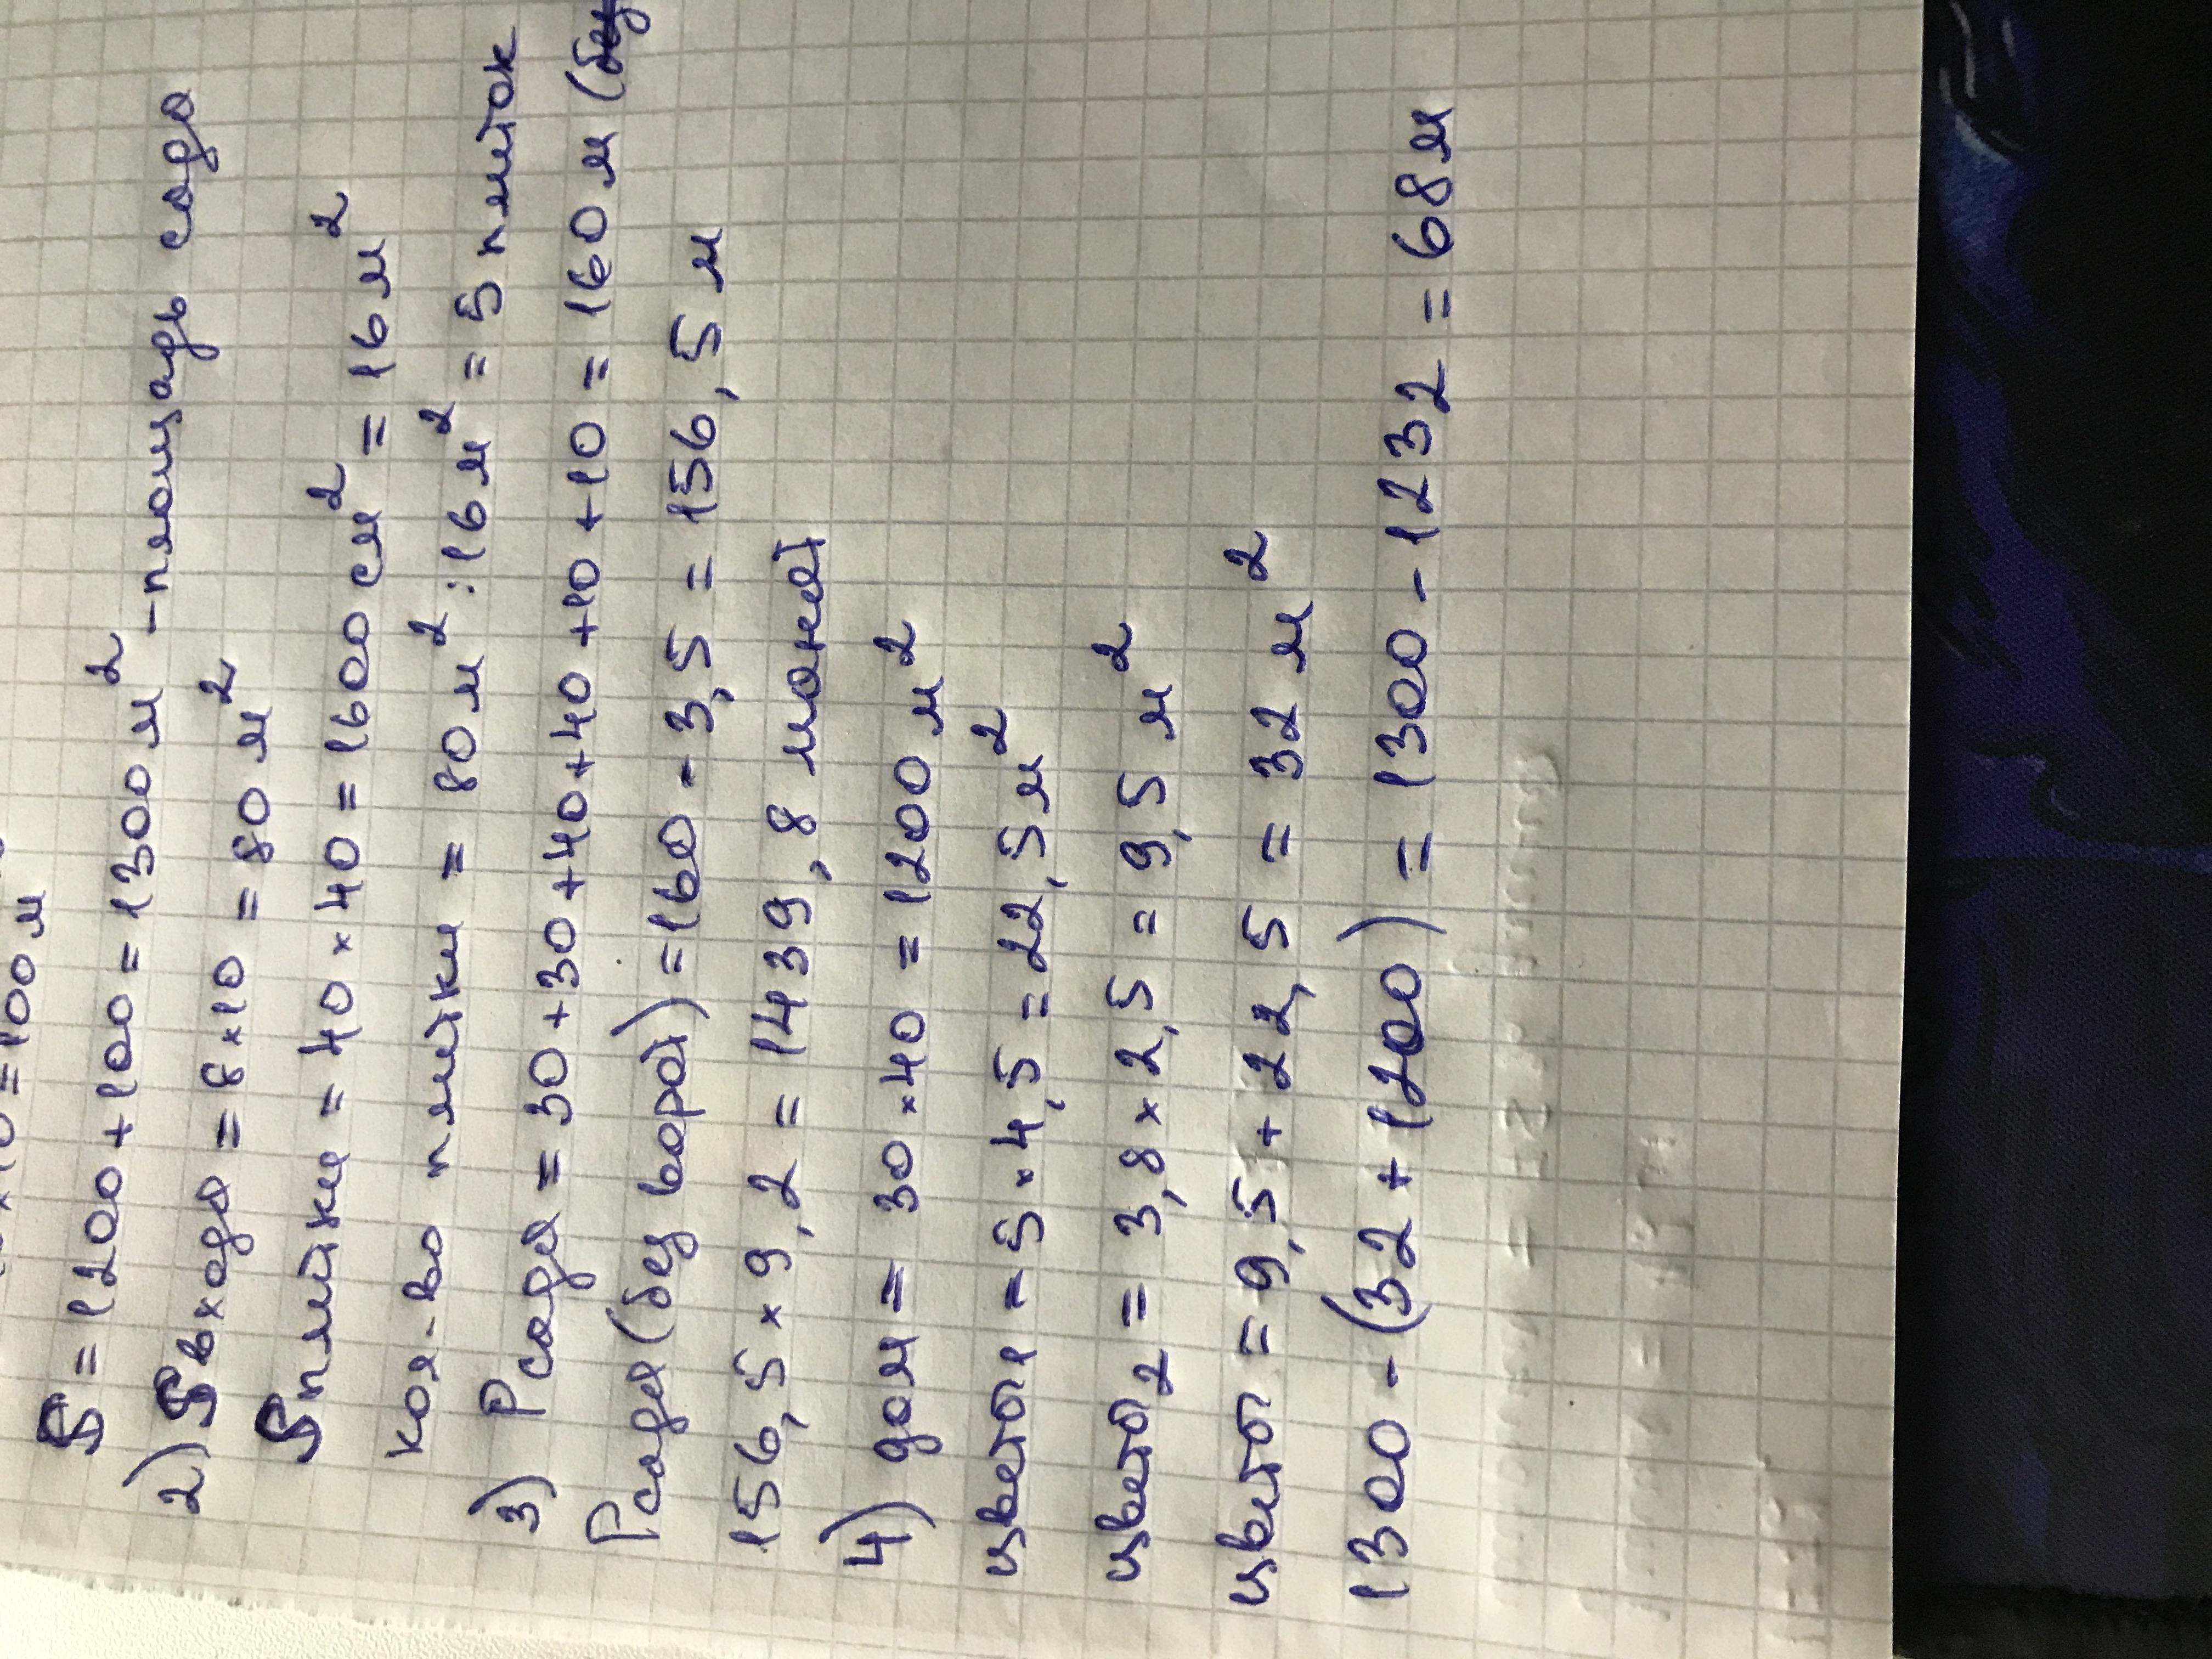 = 100 м
S = 1200 + 100 = 1300 м² – площадь сада
2) S входа = 8 × 10 = 80 м²
S плитки = 40 × 40 = 1600 см² = 16 м²
кол-во плитки = 80 м² : 16 м² = 5 плиток
3) P сада = 30 + 30 + 40 + 40 + 10 + 10 = 160 м (без
P сада (без ворот) = 160 - 3,5 = 156,5 м
156,5 × 9,2 = 1439,8 монет
4) дом = 30 × 40 = 1200 м²
цветы₁ = 5 × 4,5 = 22,5 м²
цветы₂ = 3,8 × 2,5 = 9,5 м²
цветы = 9,5 + 22,5 = 32 м²
1300 - (32 + 1200) = 1300 - 1232 = 68 м